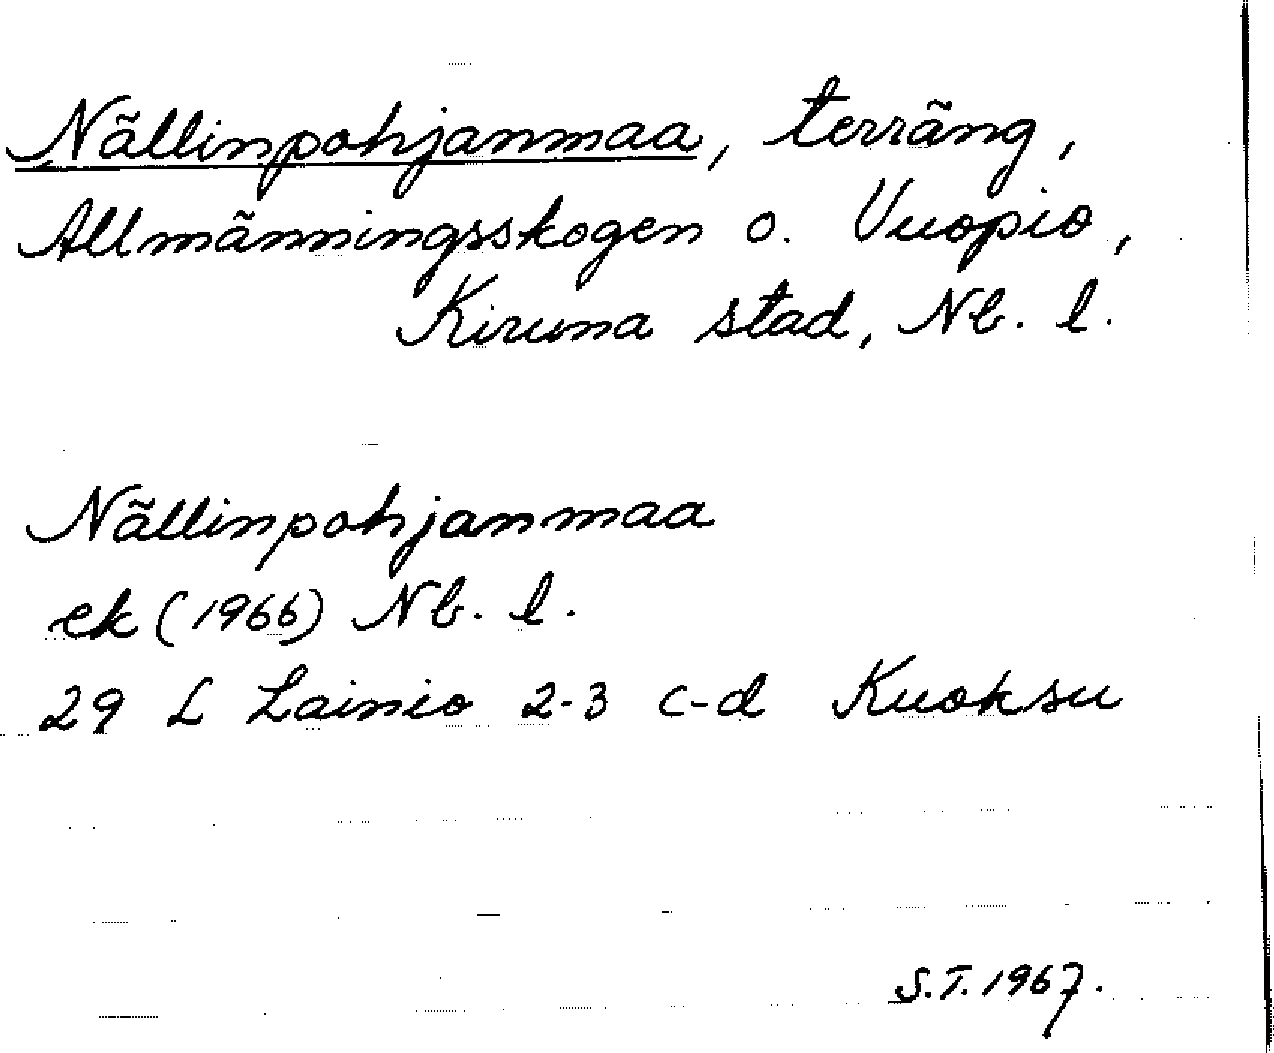 Nällinpohjanmaa, terräng,
Allmänningsskogen o. Vuopio,
Kiruna stad, Nb. l.
Nällinpohjanmaa
ek (1966) Nb. l.
29 L Lainio 2-3 c-d Kuoksu
S.T. 1967.